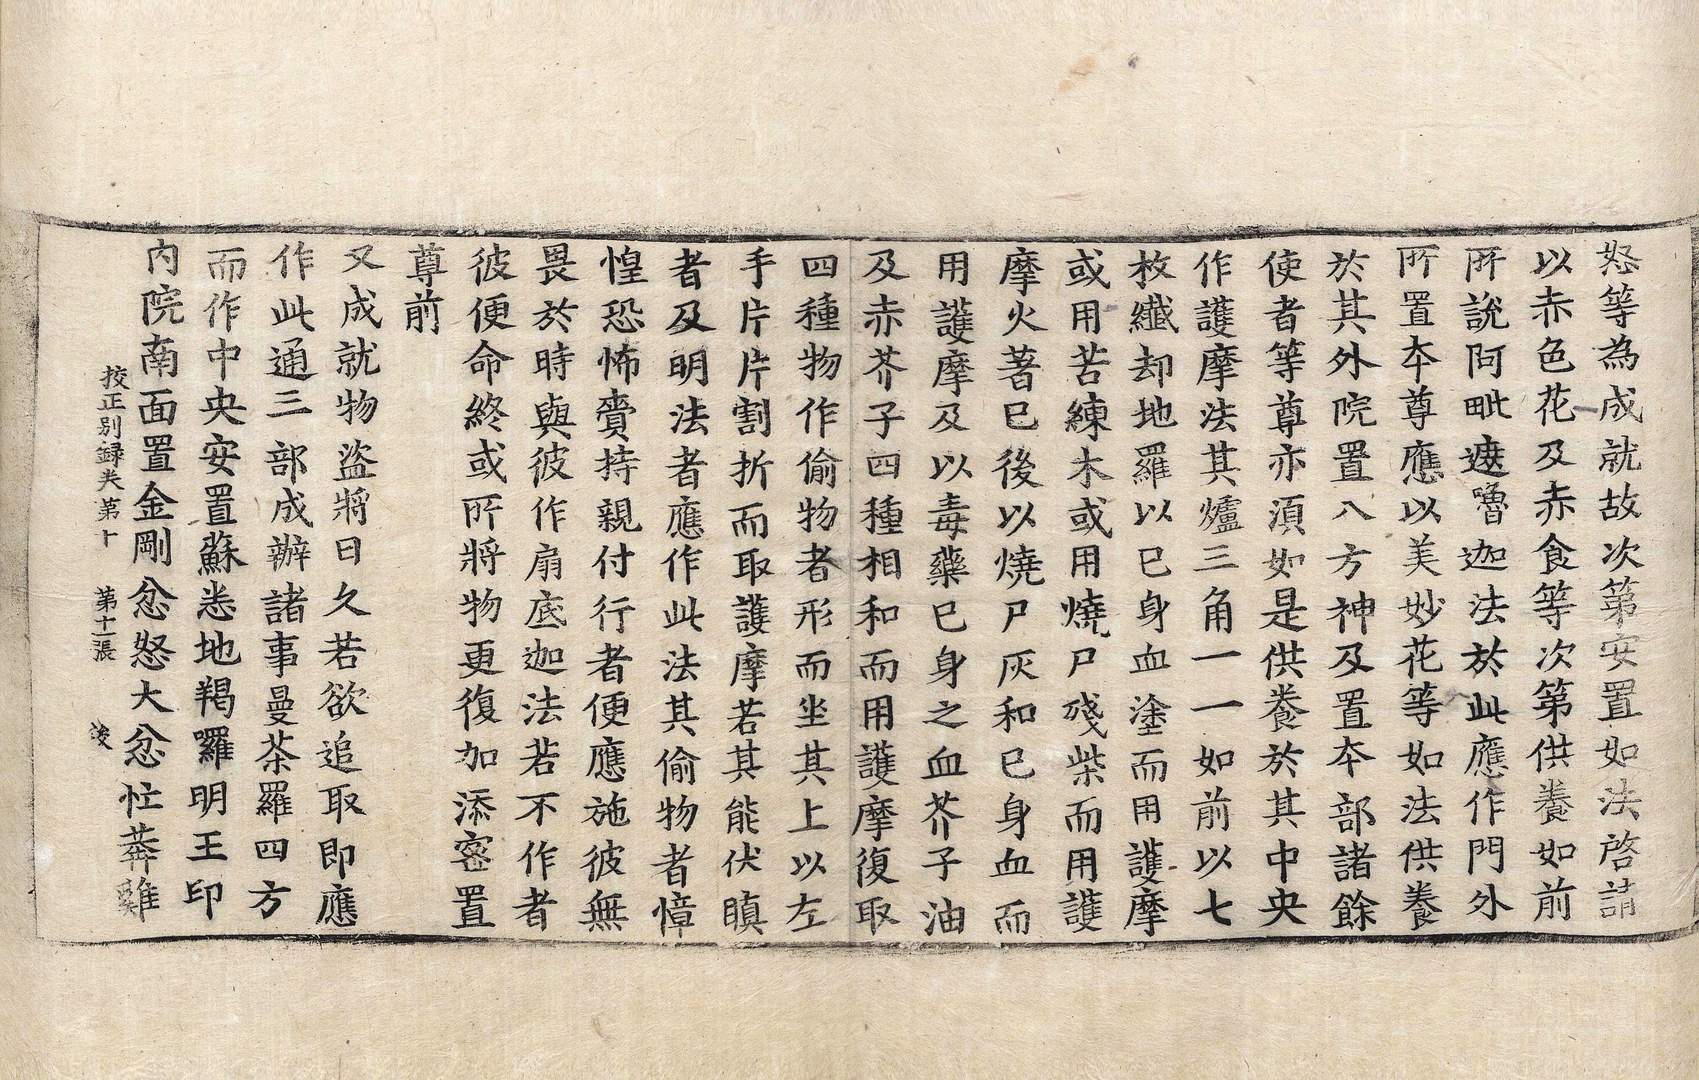 怒等為成就故次第安置如法啓請
以赤色花及赤食等次第供養如前
所說阿毗遮嚕迦法於此應作門外
所置本尊應以美妙花等如法供養
於其外院置八方神及置本部諸餘
使者等尊亦須如是供養於其中央
作護摩法其爐三角一一如前以七
枚纖却地羅以已身血塗而用護摩
或用苦練木或用燒尸殘柴而用護
摩火著已後以燒尸灰和已身血而
用護摩及以毒藥已身之血芥子油
及赤芥子四種相和而用護摩復取
四種物作偷物者形而坐其上以左
手片片割折而取護摩若其能伏瞋
者及明法者應作此法其偷物者慞
惶恐怖賫持親付行者便應施彼無
畏於時與彼作扇底迦法若不作者
彼便命終或所將物更復加添密置
尊前
又成就物盜將日久若欲追取即應
作此通三部成辦諸事曼荼羅四方
而作中央安置蘇悉地羯囉明王印
內院南面置金剛忿怒大忿忙莽雞
校正別録卷第十 第十一張 浚